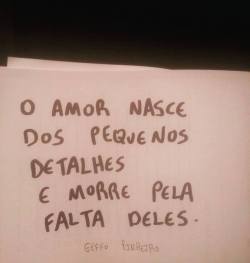 O AMOR NASCE
DOS PEQUENOS
DETALHES
E MORRE PELA
FALTA DELES.
PINHEIRO